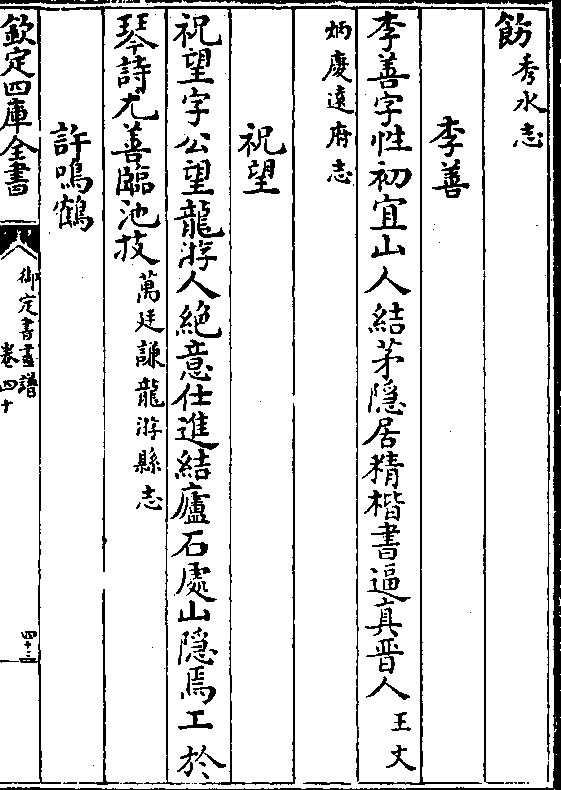 飭秀水志
李善
李善字性初宜山人結茅隱居精楷書逼真晉人王文
炳慶遠府志
祝望
祝望字公望龍游人絕意仕進結廬石處山隱焉工於
琴詩尤善臨池技萬廷謙龍游縣志
許鳴鶴
欽定四庫全書
御定書畫譜
卷四十
四十三